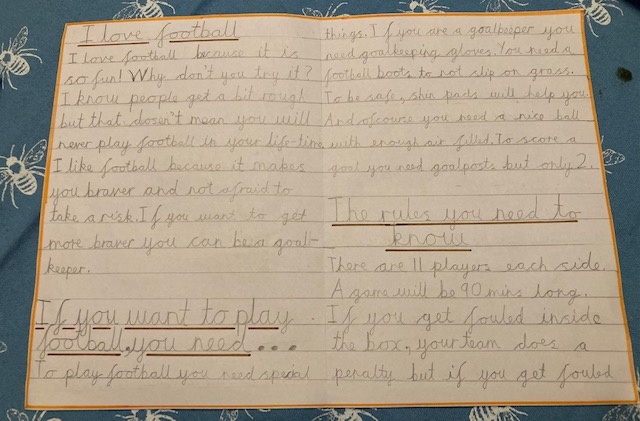 I love football
I love football because it is
so fun! Why don't you try it?
I know people get a bit rough
but that dosen't mean you will
never play football in your life-time
I like football because it makes
you braver and not afraid to
take a risk. If you want to get
more braver you can be a goal-
keeper.
If you want to play
football, you need...
To play football you need special
things. If you are a goalkeeper you
need goalkeeping gloves. You need a
football boots to not slip on grass.
To be safe, shin pads will help you.
And ofcourse you need a nice ball
with enough air filled. To score a
goal you need goalposts but only 2.
The rules you need to
know
There are 11 players each side.
A game will be 90 mins long.
If you get fouled inside
the box, your team does a
penalty but if you get fouled